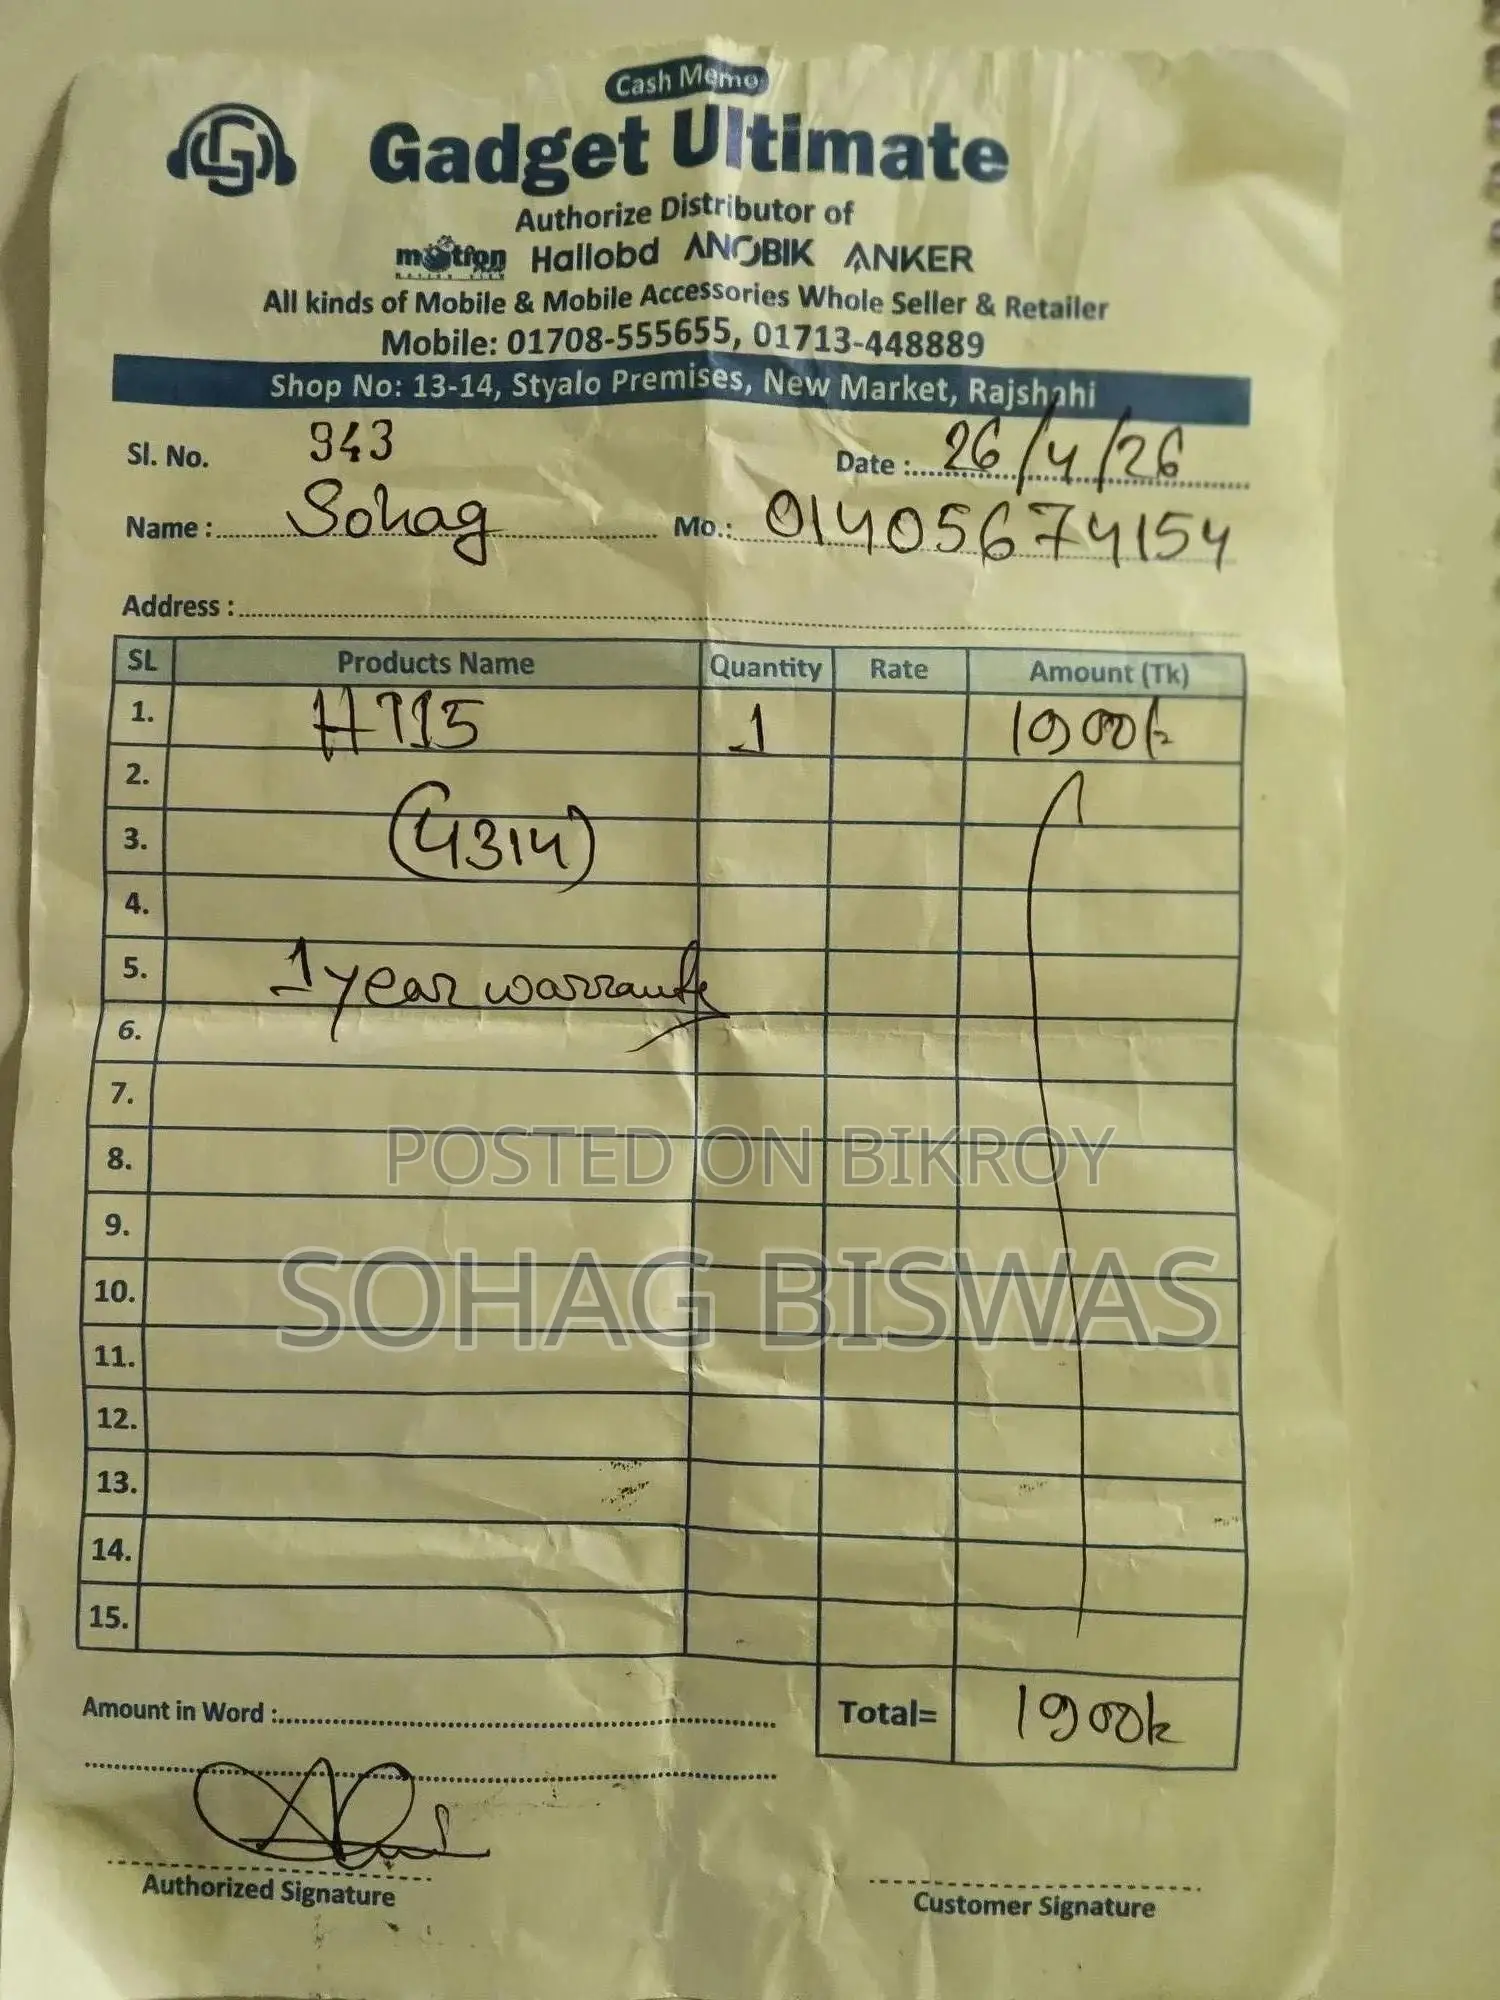 Cash Memo
Gadget Ultimate
Authorize Distributor of
motion Hallobd ANOBIK ANKER
All kinds of Mobile & Mobile Accessories Whole Seller & Retailer
Mobile: 01708-555655, 01713-448889
Shop No: 13-14, Styalo Premises, New Market, Rajshahi
Sl. No. 943 Date : 26/4/26
Name : Sohag Mo.: 01405674154
Address :
SL Products Name Quantity Rate Amount (Tk)
1. H715 1 1900
2.
3. (4314)
4.
5. 1 year warranty
6.
7.
8.
POSTED ON BIKROY
9.
10.
SOHAG BISWAS
11.
12.
13.
14.
15.
Amount in Word : Total= 1900
Authorized Signature Customer Signature